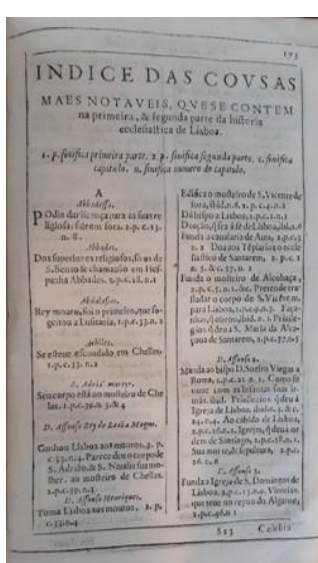 173
INDICE DAS COVSAS
MAES NOTAVEIS, QVE SE CONTEM
na primeira, & segunda parte da historia
ecclesiastica de Lisboa.
1. p. sinifica primeira parte. 2. p. sinifica segunda parte. c. sinifica
capitulo. n. sinifica numero do capitulo.
A
Abbadessa.
Podia dar licença para as suas re
ligiosas sairem fora. 2. p. c. 13.
n. 8.
Abbades.
Dos superiores religiosos, só os de
S. Bento se chamauão em Hes-
panha Abbades. 1. p. c. 18. n.1
Rey mouro, foi o primeiro, que so-
geitou a Lusitania. 1. p. c. 33. n.2
Achilles.
Se esteue escondido, em Chellas.
1. p. c. 13. n.1
S. Adriaõ martyr.
Seu corpo està no mosteiro de Che
las. 1. p. c. 39. n. 3. & 4
D. Affonso Rey de Leaõ o Magno.
Ganhou Lisboa aos mouros. 2. p.
c. 33. n.4. Parece deu o corpo de
S. Adriaõ, & S. Natalia sua mo-
lher, ao mosteiro de Chellas.
1. p. c. 39. n.3
D. Affonso Henriques.
Toma Lisboa aos mouros. 2. p.
c. 33. n.4.
Edifica o mosteiro de S. Vicente de
fora, ibid. n. 6. 2. p. c. 4. n.1
Dà bispo a Lisboa, 2. p. c. 1. n.1
Doação, q̃ fez à sè de Lisboa, ibi. n.6
Funda a caualaria de Auis, 2. p. c. 5
n. 1 Doa aos Tẽplarios o eccle
siastico de Santarem, 2. p. c. 1
n. 5. & c. 37. n. 1
Funda o mosteiro de Alcobaça,
2. p. c. 5. n. 1. &c. Pretende tra-
sladar o corpo de S. Vicẽte m.
para Lisboa, 2. p. c. 9. n. 3. Faça-
gios q̃ deu a S. Maria da Alca-
çoua de Santarem, 2. p. c. 37. n.3
D. Affonso 2.
Manda ao bispo D. Sueiro Viegas a
Roma, 2. p. c. 21. n. 1. Como se
ouue com as Infantas suas ir-
mãs. ibid. Priuilegios q̃ deu à
Igreja de Lisboa. ibid. n. 2. & c.
24. n. 4. Ao cabido de Lisboa,
dem de Santiago, 2. p. c. 58. n. 2.
Sua morte, & sepultura, 2. p. c.
26. n. 8
D. Affonso 3.
Funda a Igreja de S. Domingos de
Lisboa. 2. p. c. 13. n.0. Vitorias
que teue no reyno do Algarue,
2. p. c. 46. n. 1
Sf3
Celebra